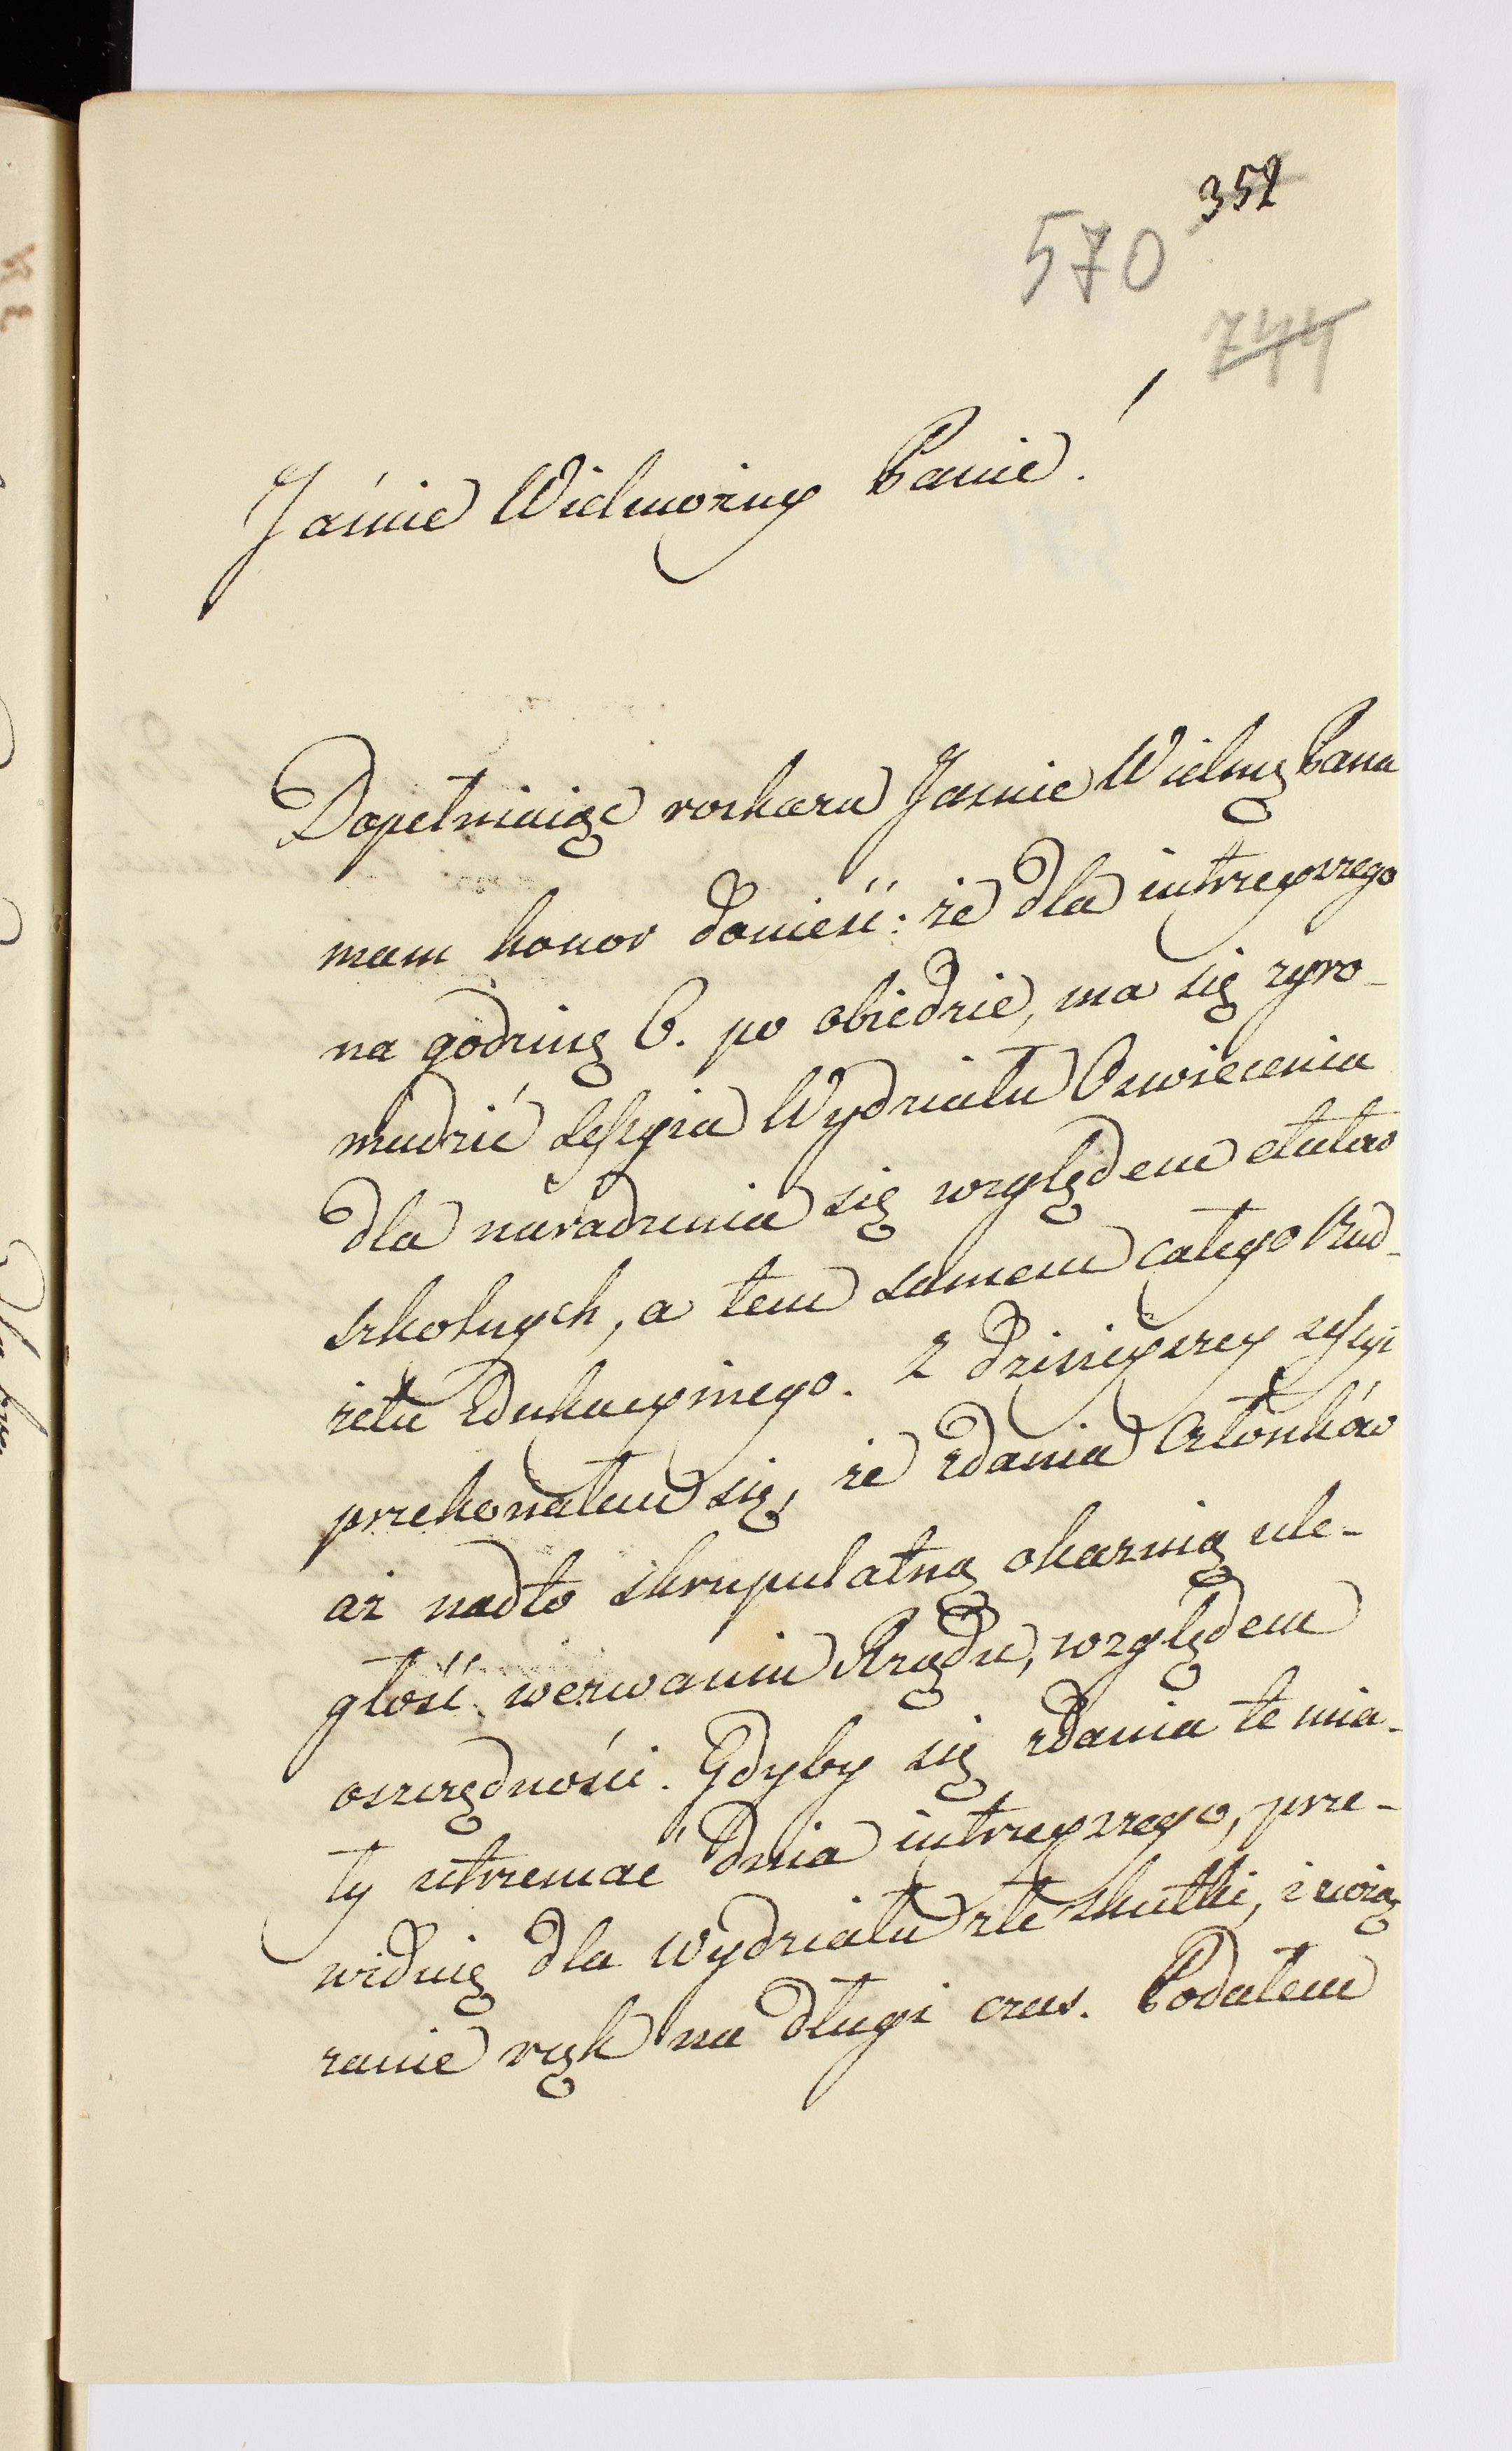 352
570
744
Jaśnie Wielmożny Panie!
Dopełniaiąc roskazu Jasnie Wielmę Pana
mam honor donieść: że dla iutrzeyszego
na godzinę 6. po obiedzie, ma się zgro-
madzić sessyia Wydziału Oswiecenia
dla naradzenia się względem etatów
szkolnych, a tem samem całego Bud-
żetu Edukacyinego. Z dzisieyszey sessyi
przekonałem się, że zdania Członków
aż nadto skrupulatną okazuią ule-
głość wezwaniu Rządu, względem
oszczędności. Gdyby się zdania te mia-
ły utrzemać dnia iutrzeyszego, prze-
widuię dla wydziału złe skutki, i zwią
zanie rąk na długi czas. Podałem